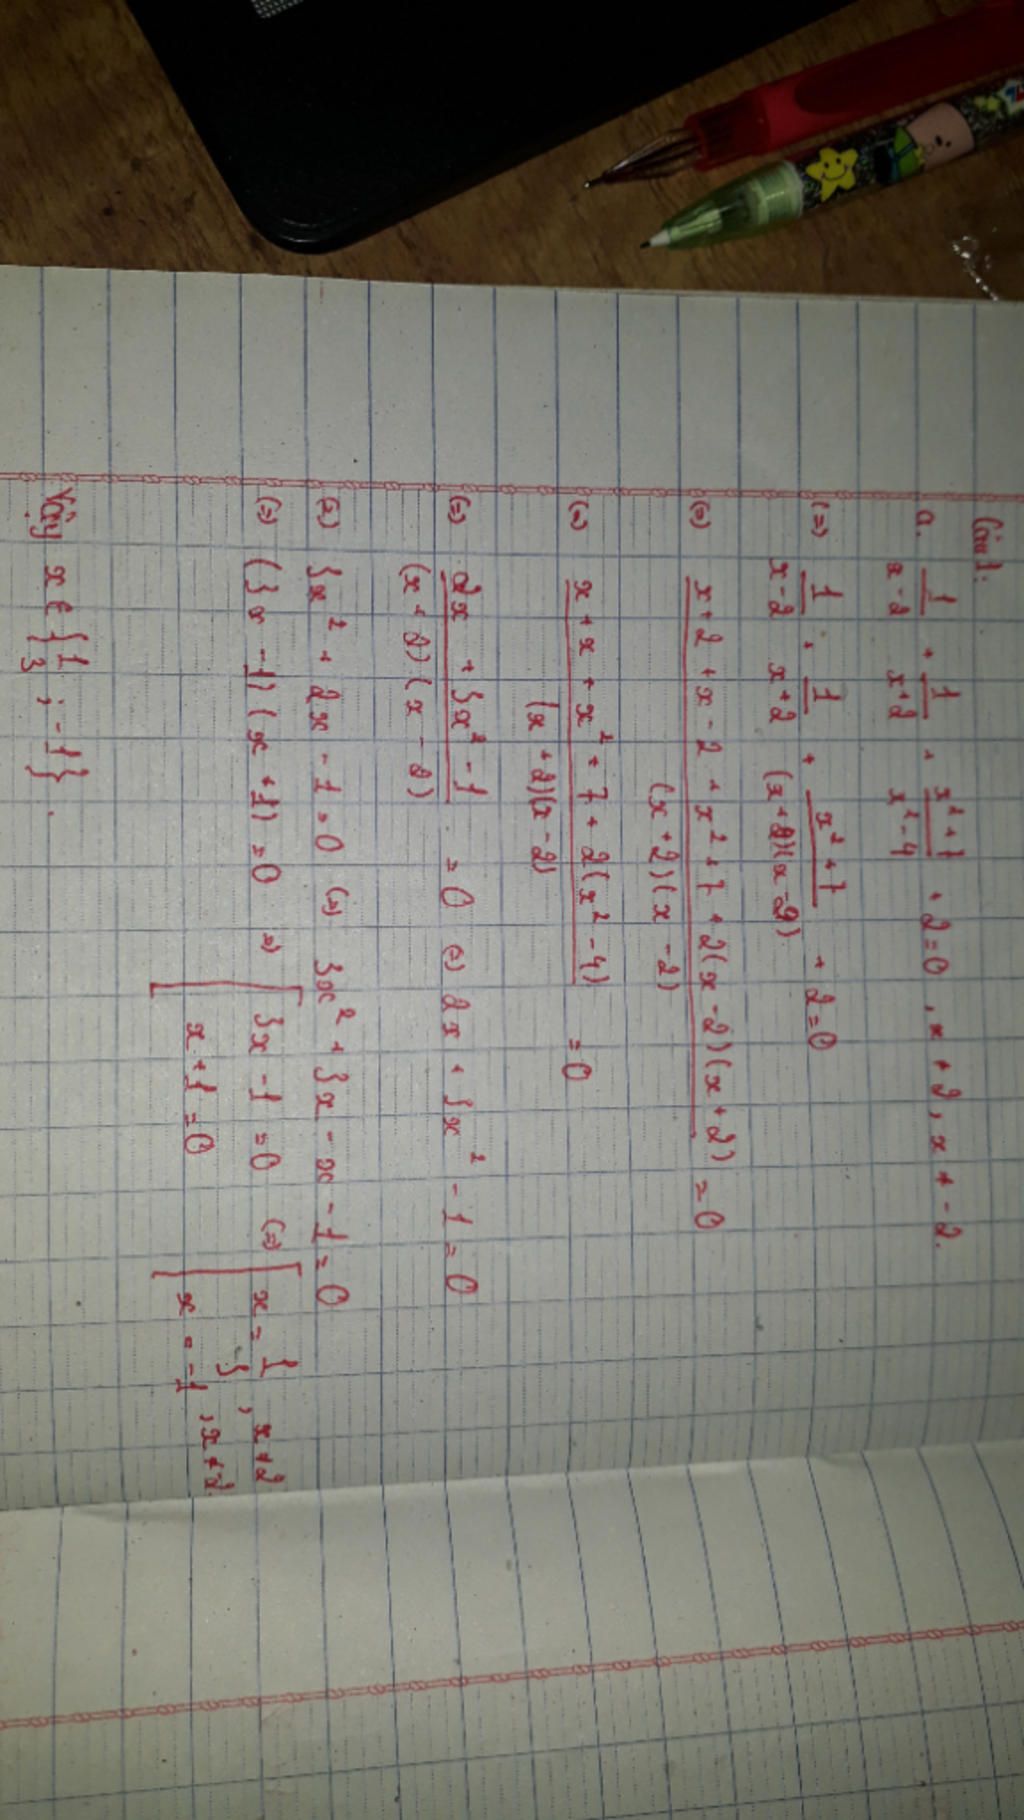 Câu 1:
a. 1/(x-2) + 1/(x+2) + (x²+7)/(x²-4) + 2 = 0 , x ≠ 2, x ≠ -2.
(=) 1/(x-2) + 1/(x+2) + (x²+7)/((x+2)(x-2)) + 2 = 0
(=) (x+2 + x-2 + x²+7 + 2(x-2)(x+2))/((x+2)(x-2)) = 0
(=) (x + x + x² + 7 + 2(x²-4))/((x+2)(x-2)) = 0
(=) (2x + 3x² - 1)/((x+2)(x-2)) = 0 (=) 2x + 3x² - 1 = 0
(=) 3x² + 2x - 1 = 0 (=) 3x² + 3x - x - 1 = 0
(=) (3x - 1)(x + 1) = 0 =) [ 3x - 1 = 0 (=) [ x = 1/3 , x ≠ 2
x + 1 = 0 x = -1 , x ≠ -2
Vậy x ∈ {1/3 ; -1}.